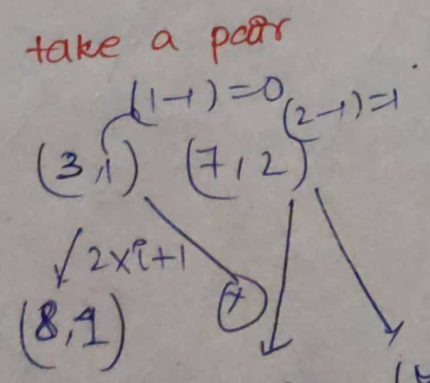 take a pair
(1-1)=0
(2-1)=1
(3,1) (7,2)
2xi+1
(8,1)